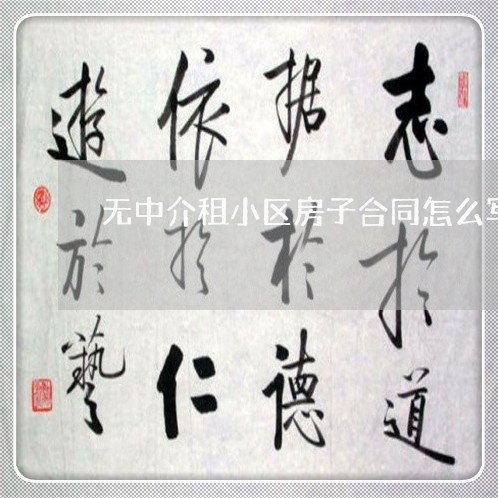 志於道
据於德
依於仁
遊於藝
无中介租小区房子合同怎么写